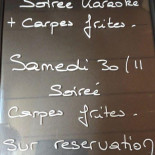 Soirée Karaoké
+ Carpes frites.
Samedi 30/11
Soireé
Carpes frites.
Sur reservation